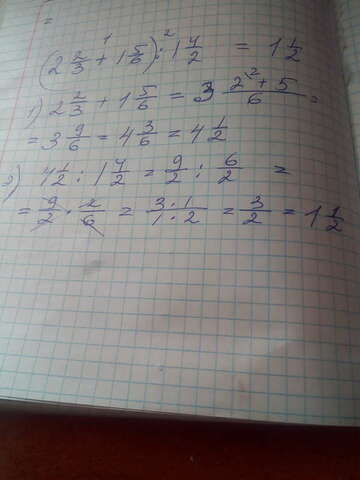 =
(2 2/3 + 1 5/6) : 1 4/2 = 1 1/2
1) 2 2/3 + 1 5/6 = 3 (2² + 5)/6 =
= 3 9/6 = 4 3/6 = 4 1/2
2) 4 1/2 : 1 4/2 = 9/2 : 6/2 =
= 9/2 · 2/6 = (3 · 1)/(1 · 2) = 3/2 = 1 1/2